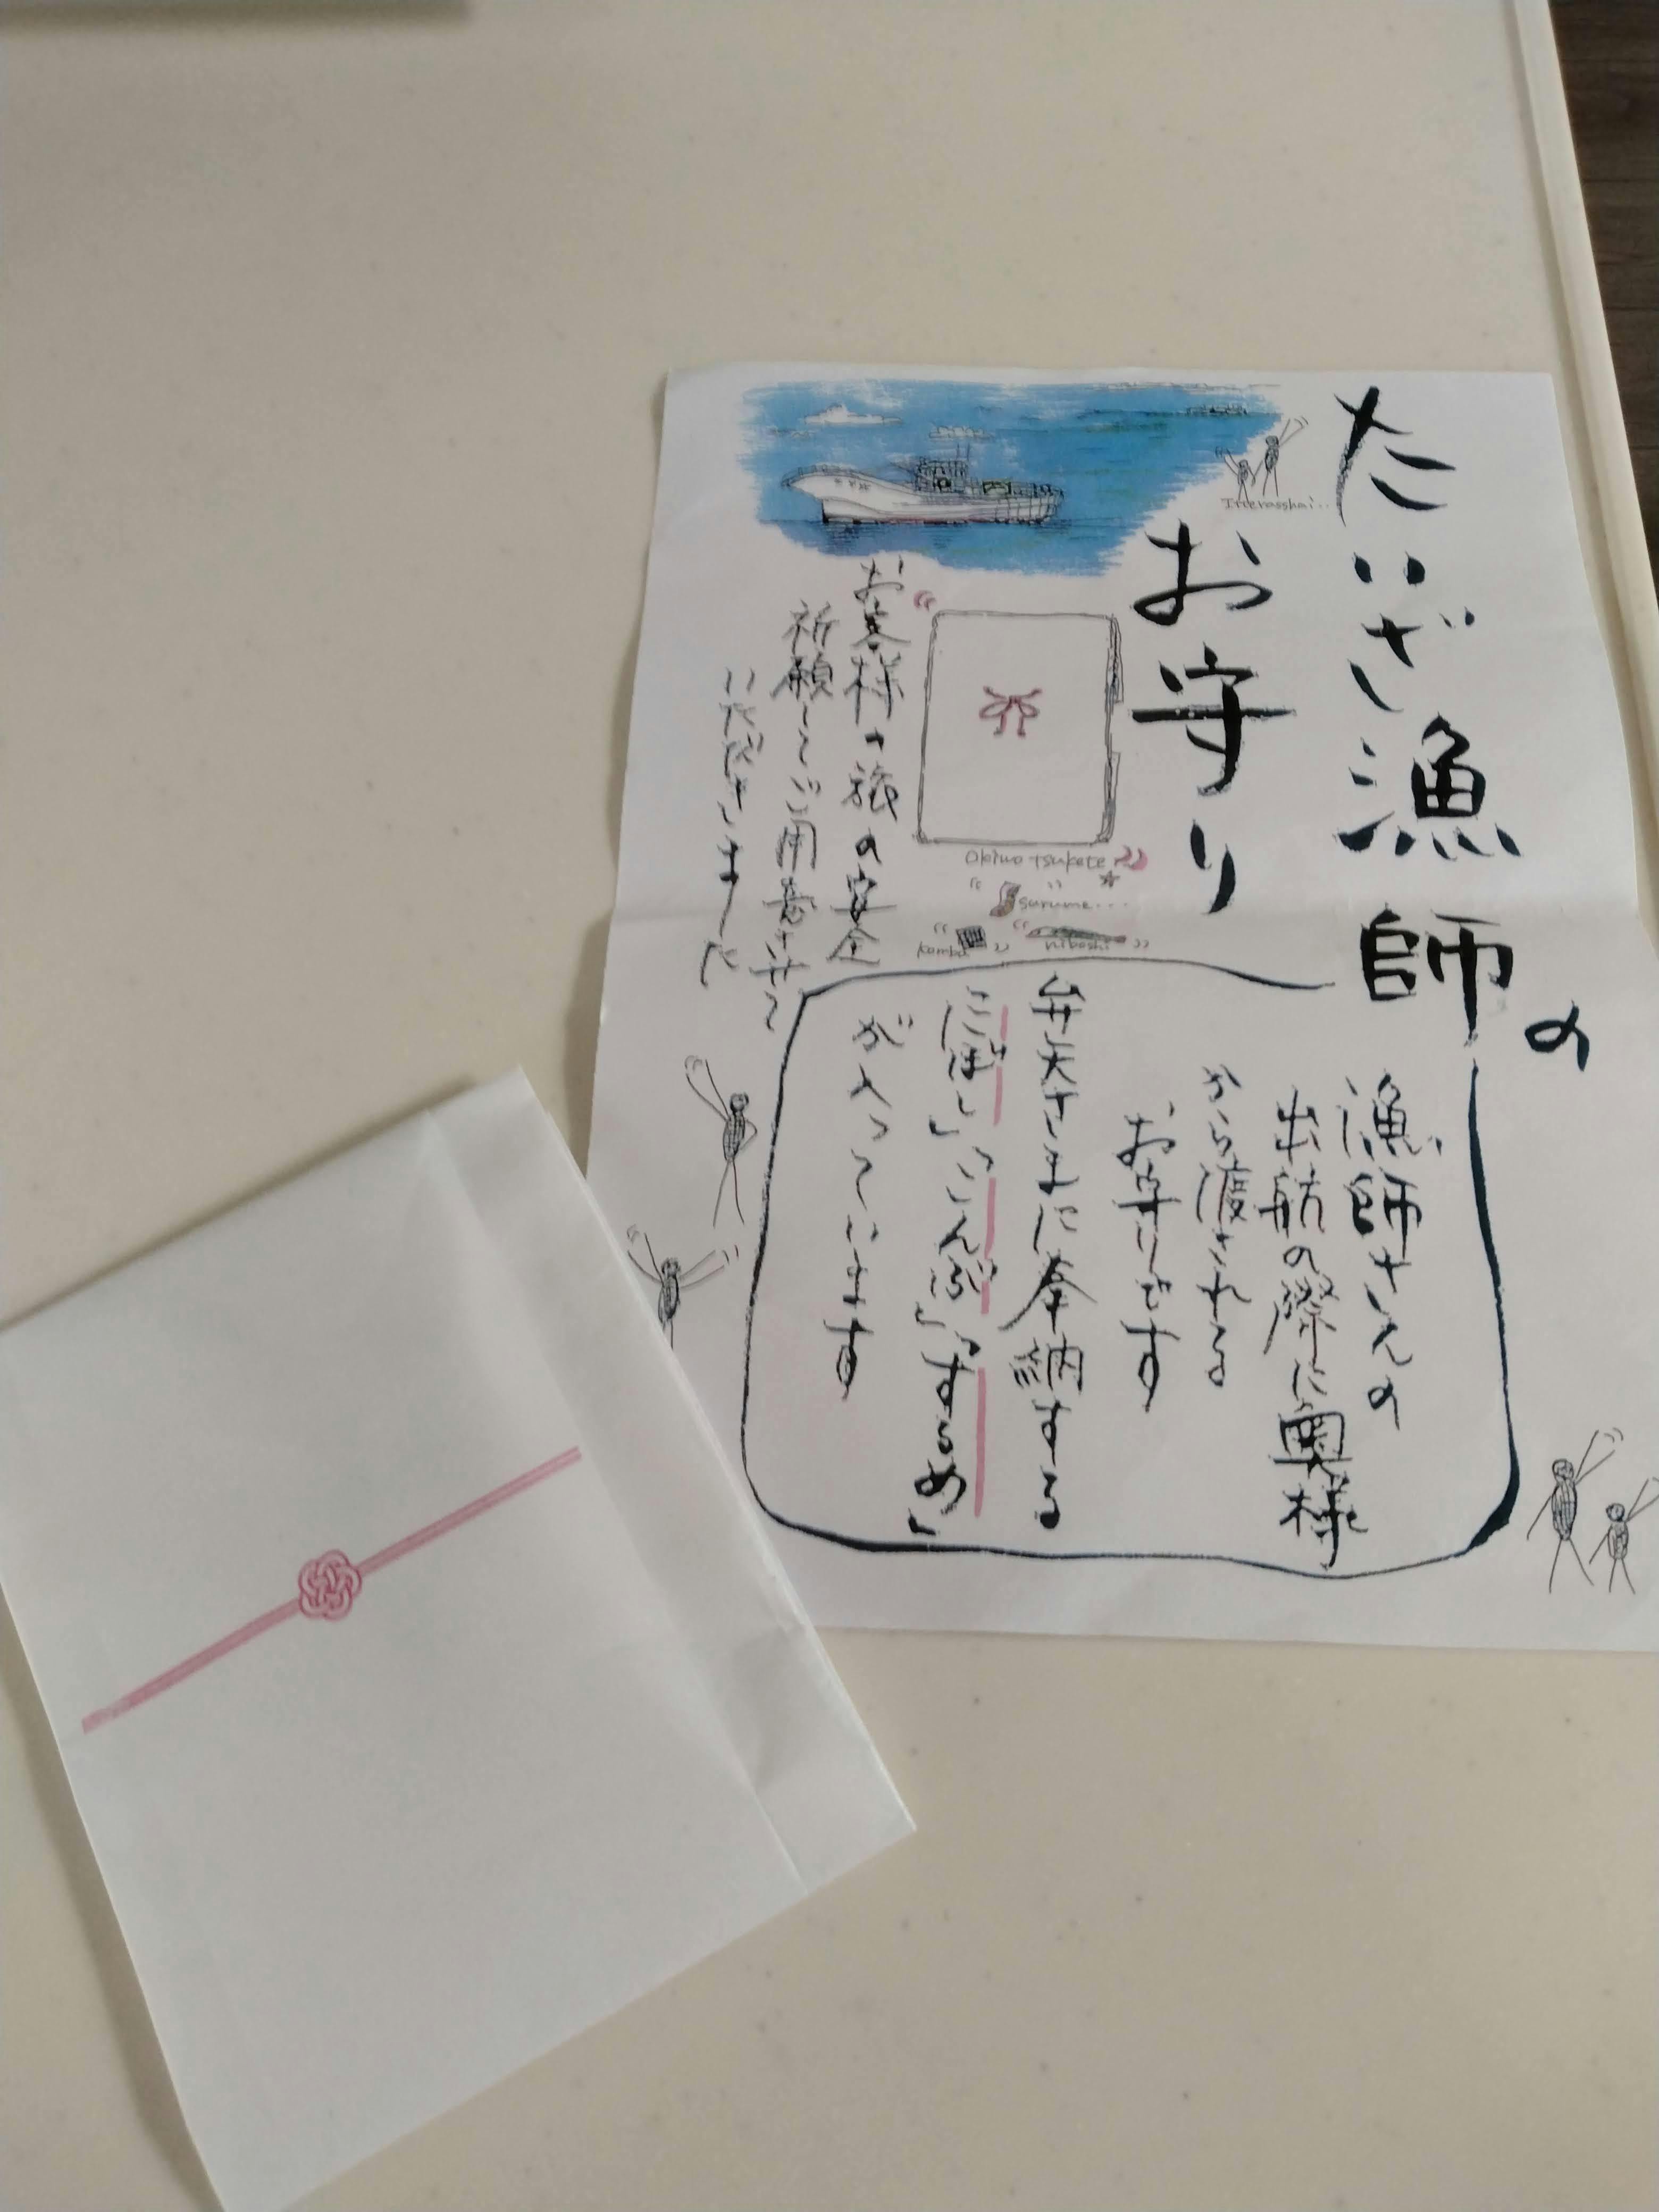 たいざ漁師の
お守り
Itterasshai..
Okiwo tsukete
surume...
kombu
niboshi
お客様の旅の安全
祈願してご用意させて
いただきました
漁師さんの
出航の際に奥様
から渡される
お守りです
弁天さまに奉納する
「にぼし」「こんぶ」「するめ」
が入っています